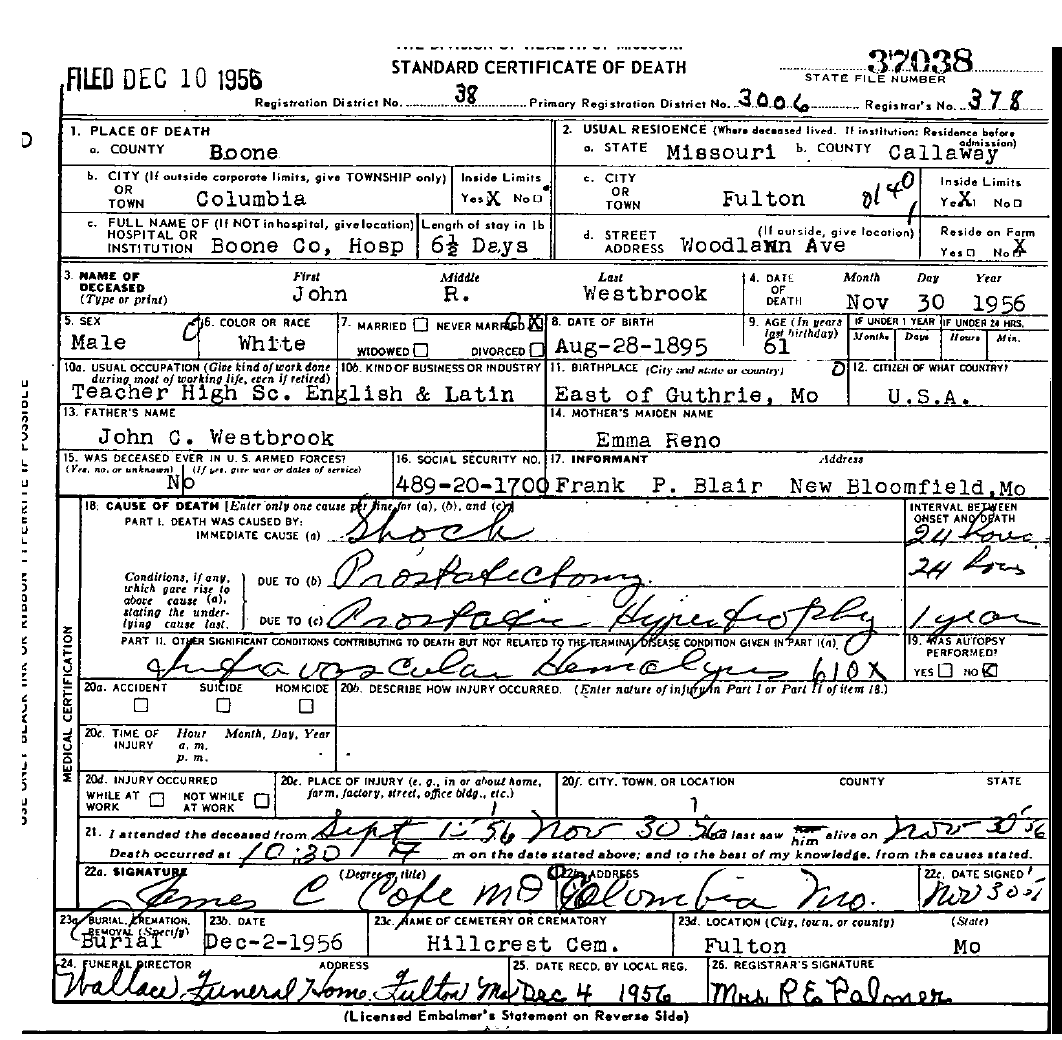 THE DIVISION OF HEALTH OF MISSOURI
STANDARD CERTIFICATE OF DEATH
FILED DEC 10 1956
37038
STATE FILE NUMBER
Registration District No. 38 Primary Registration District No. 3006 Registrar's No. 378
1. PLACE OF DEATH
a. COUNTY Boone
2. USUAL RESIDENCE (Where deceased lived. If institution: Residence before admission)
a. STATE Missouri b. COUNTY Callaway
b. CITY (If outside corporate limits, give TOWNSHIP only) OR TOWN Columbia
Inside Limits Yes X No □
c. CITY OR TOWN Fulton 0140
Inside Limits Yes X No □
c. FULL NAME OF (If NOT in hospital, give location) HOSPITAL OR INSTITUTION Boone Co, Hosp
Length of stay in 1b 6½ Days
d. STREET ADDRESS (If outside, give location) Woodlawn Ave
Reside on Farm Yes □ No X
3. NAME OF DECEASED (Type or print) First Middle Last
John R. Westbrook
4. DATE OF DEATH Month Day Year
Nov 30 1956
5. SEX Male
6. COLOR OR RACE White
7. MARRIED □ NEVER MARRIED X
WIDOWED □ DIVORCED □
8. DATE OF BIRTH Aug-28-1895
9. AGE (In years last birthday) 61
IF UNDER 1 YEAR Months Days
IF UNDER 24 HRS. Hours Min.
10a. USUAL OCCUPATION (Give kind of work done during most of working life, even if retired)
10b. KIND OF BUSINESS OR INDUSTRY
Teacher High Sc. English & Latin
11. BIRTHPLACE (City and state or country) East of Guthrie, Mo
12. CITIZEN OF WHAT COUNTRY? U.S.A.
13. FATHER'S NAME
John C. Westbrook
14. MOTHER'S MAIDEN NAME
Emma Reno
15. WAS DECEASED EVER IN U.S. ARMED FORCES? (Yes, no, or unknown) (If yes, give war or dates of service)
No
16. SOCIAL SECURITY NO. 489-20-1700
17. INFORMANT Address
Frank P. Blair New Bloomfield, Mo
MEDICAL CERTIFICATION
18. CAUSE OF DEATH [Enter only one cause per line for (a), (b), and (c)]
INTERVAL BETWEEN ONSET AND DEATH
PART I. DEATH WAS CAUSED BY:
IMMEDIATE CAUSE (a) Shock 24 hours
Conditions, if any, which gave rise to above cause (a), stating the underlying cause last.
DUE TO (b) Prostatectomy. 24 hours
DUE TO (c) Prostatic Hypertrophy 1 year
PART II. OTHER SIGNIFICANT CONDITIONS CONTRIBUTING TO DEATH BUT NOT RELATED TO THE TERMINAL DISEASE CONDITION GIVEN IN PART I(a)
Intravascular Hemolysis 610X
19. WAS AUTOPSY PERFORMED? YES □ NO X
20a. ACCIDENT SUICIDE HOMICIDE
20b. DESCRIBE HOW INJURY OCCURRED. (Enter nature of injury in Part I or Part II of item 18.)
20c. TIME OF INJURY Hour a. m. p. m. Month, Day, Year
20d. INJURY OCCURRED WHILE AT WORK □ NOT WHILE AT WORK □
20e. PLACE OF INJURY (e. g., in or about home, farm, factory, street, office bldg., etc.)
20f. CITY, TOWN, OR LOCATION COUNTY STATE
21. I attended the deceased from Sept 1 '56 Nov 30 56 last saw him alive on Nov 30 '56
Death occurred at 10:30 m on the date stated above; and to the best of my knowledge, from the causes stated.
22a. SIGNATURE (Degree or title) James C Cope MD
22b. ADDRESS Columbia Mo.
22c. DATE SIGNED Nov 30
23a. BURIAL, CREMATION, REMOVAL (Specify) Burial
23b. DATE Dec-2-1956
23c. NAME OF CEMETERY OR CREMATORY Hillcrest Cem.
23d. LOCATION (City, town, or county) (State) Fulton Mo
24. FUNERAL DIRECTOR ADDRESS
Wallace Funeral Home, Fulton Mo
25. DATE RECD. BY LOCAL REG. Dec 4 1956
26. REGISTRAR'S SIGNATURE Mrs R E Palmer
(Licensed Embalmer's Statement on Reverse Side)